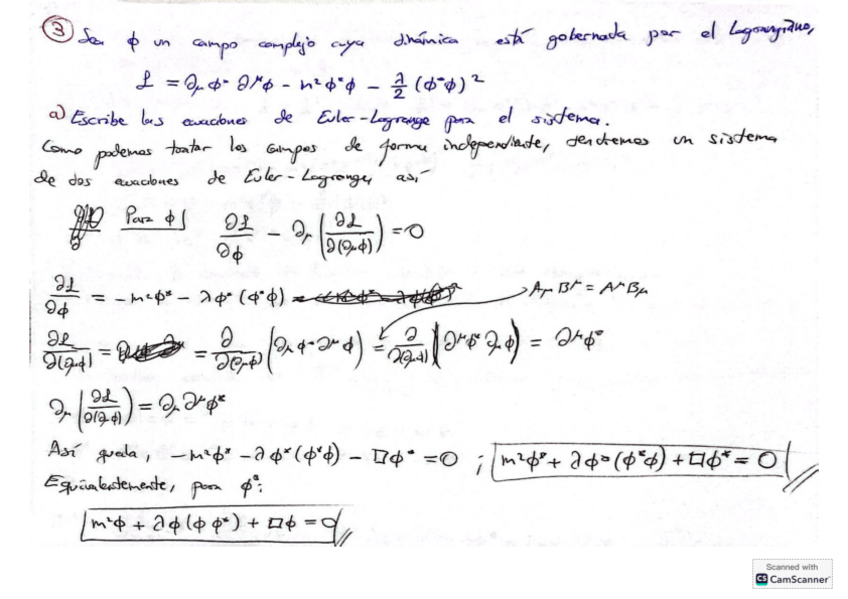 ③ Sea ϕ un campo complejo cuya dinámica está gobernada por el Lagrangiano,
ℒ = ∂μ ϕ* ∂^μ ϕ - m² ϕ*ϕ - λ/2 (ϕ*ϕ)²
a) Escribe las ecuaciones de Euler-Lagrange para el sistema.
Como podemos tratar los campos de forma independiente, tendremos un sistema
de dos ecuaciones de Euler-Lagrange, así
Para ϕ | ∂ℒ/∂ϕ - ∂μ (∂ℒ/∂(∂μϕ)) = 0
∂ℒ/∂ϕ = -m²ϕ* - λϕ* (ϕ*ϕ) AμB^μ = A^μBμ
∂ℒ/∂(∂μϕ) = ∂/∂(∂μϕ) (∂μ ϕ* ∂^μ ϕ) = ∂/∂(∂μϕ) (∂^μ ϕ* ∂μ ϕ) = ∂^μ ϕ*
∂μ (∂ℒ/∂(∂μϕ)) = ∂μ ∂^μ ϕ*
Así queda, -m²ϕ* - λϕ* (ϕ*ϕ) - □ϕ* = 0 ; m²ϕ* + λϕ* (ϕ*ϕ) + □ϕ* = 0
Equivalentemente, para ϕ*:
m²ϕ + λϕ (ϕϕ*) + □ϕ = 0
Scanned with
CS CamScanner